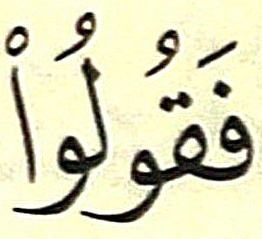 فَقُولُوا۟